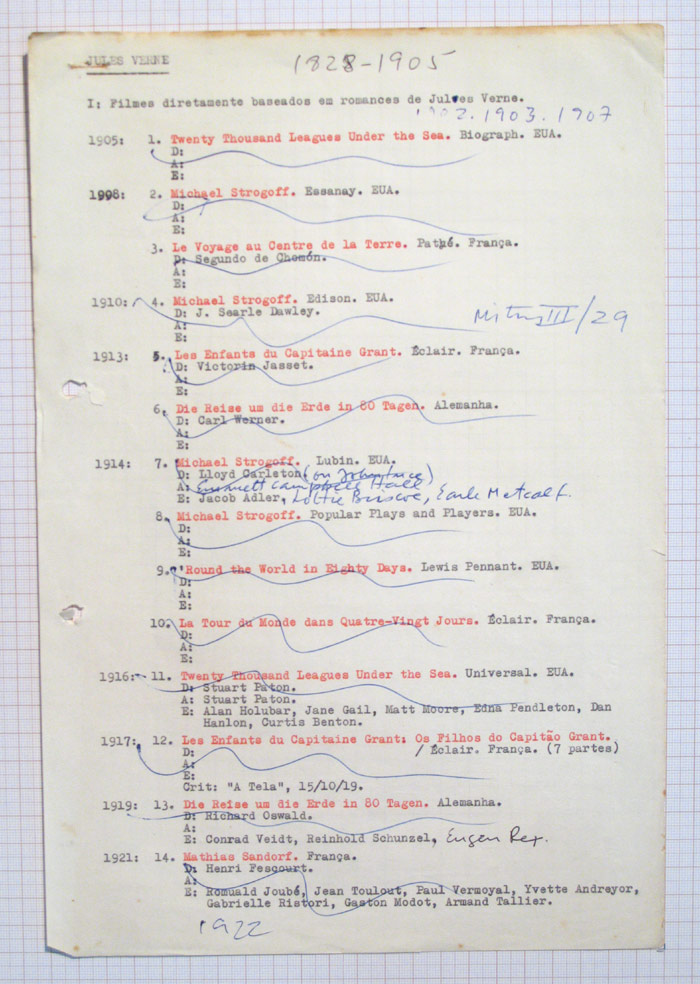 JULES VERNE
1828-1905
I: Filmes diretamente baseados em romances de Julves Verne.
1902. 1903. 1907
1905: 1. Twenty Thousand Leagues Under the Sea. Biograph. EUA.
D:
A:
E:
1908: 2. Michael Strogoff. Essanay. EUA.
D:
A:
E:
3. Le Voyage au Centre de la Terre. Pathé. França.
D: Segundo de Chomón.
A:
E:
1910: 4. Michael Strogoff. Edison. EUA.
D: J. Searle Dawley.
A:
E:
III/29
1913: 5. Les Enfants du Capitaine Grant. Éclair. França.
D: Victorin Jasset.
A:
E:
6. Die Reise um die Erde in 80 Tagen. Alemanha.
D: Carl Werner.
A:
E:
1914: 7. Michael Strogoff. Lubin. EUA.
D: Lloyd Carleton (ou John Ince)
A: Emmett Campbell Hall
E: Jacob Adler, Lottie Briscoe, Earle Metcalf.
8. Michael Strogoff. Popular Plays and Players. EUA.
D:
A:
E:
9. 'Round the World in Eighty Days. Lewis Pennant. EUA.
D:
A:
E:
10. La Tour du Monde dans Quatre-Vingt Jours. Éclair. França.
D:
A:
E:
1916: 11. Twenty Thousand Leagues Under the Sea. Universal. EUA.
D: Stuart Paton.
A: Stuart Paton.
E: Alan Holubar, Jane Gail, Matt Moore, Edna Pendleton, Dan
Hanlon, Curtis Benton.
1917: 12. Les Enfants du Capitaine Grant: Os Filhos do Capitão Grant.
D: / Éclair. França. (7 partes)
A:
E:
Crit: "A Tela", 15/10/19.
1919: 13. Die Reise um die Erde in 80 Tagen. Alemanha.
D: Richard Oswald.
A:
E: Conrad Veidt, Reinhold Schunzel, Eugen Rex.
1921: 14. Mathias Sandorf. França.
D: Henri Fescourt.
A:
E: Romuald Joubé, Jean Toulout, Paul Vermoyal, Yvette Andreyor,
Gabrielle Ristori, Gaston Modot, Armand Tallier.
1922